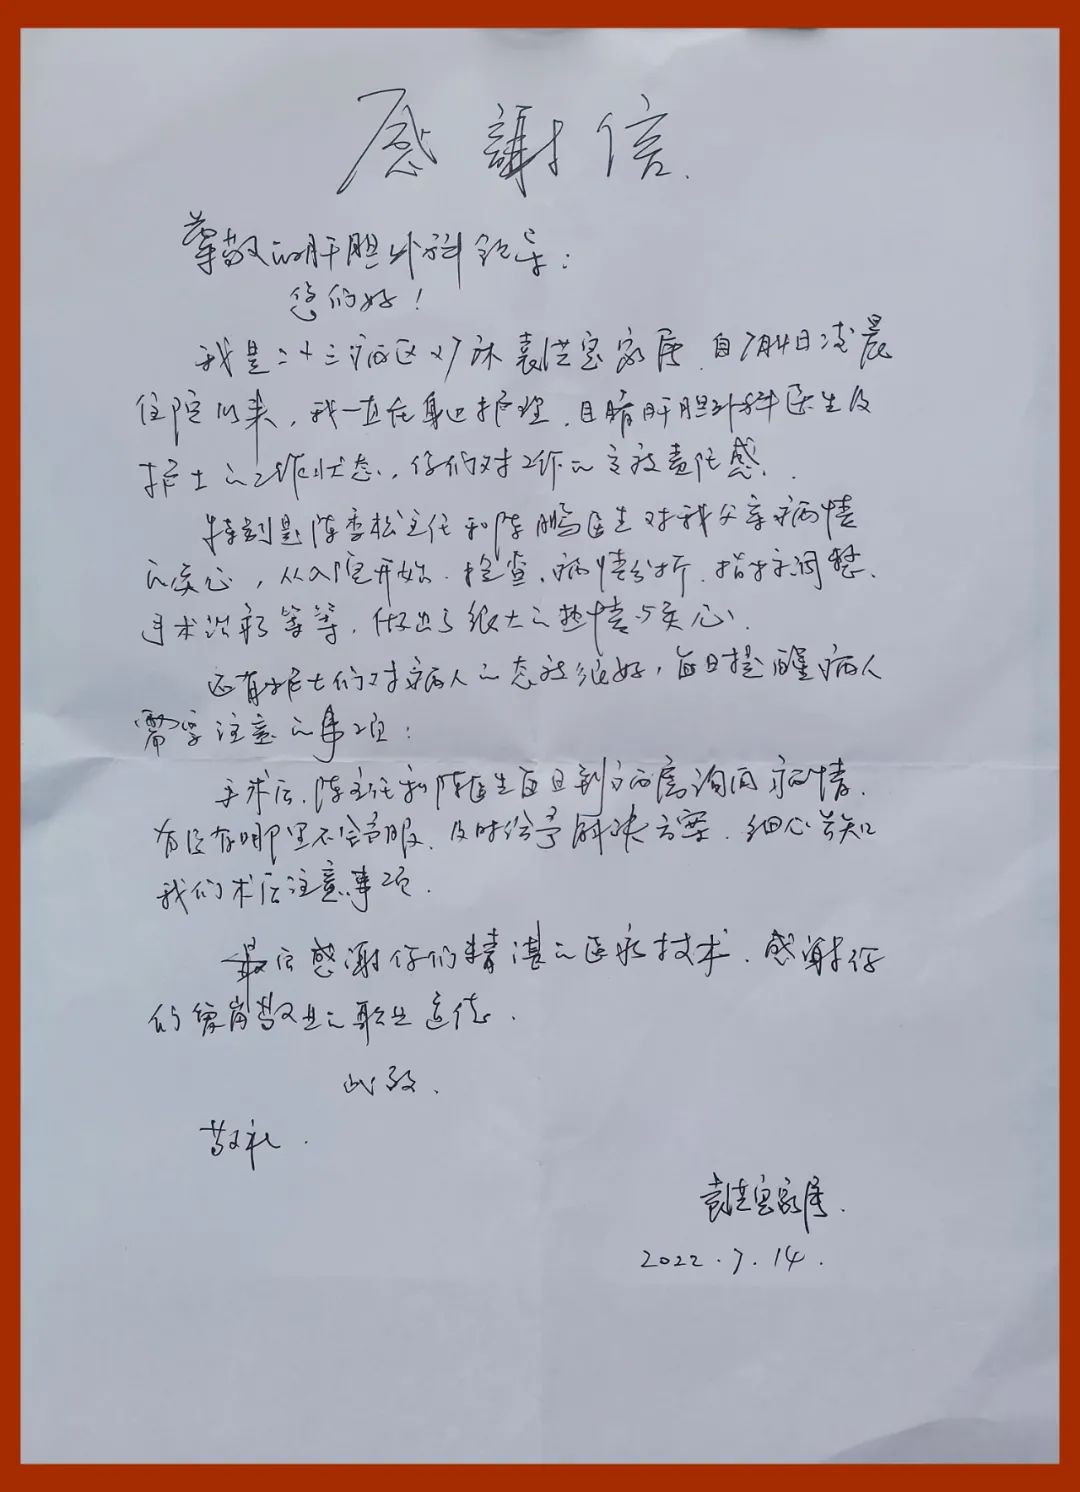 感謝信.
尊敬的肝胆外科领导：
您们好！
我是二十三病区27床袁洪宝家属，自7月4日凌晨
住院以来，我一直在身边护理，目睹肝胆外科医生及
护士的工作状态，你们对工作的高度责任感.
特别是陈雪松主任和陈鹏医生对我父亲病情
的关心，从入院开始.检查.病情分析.指标调整.
手术治疗等等，做出了很大的热情与关心.
还有护士们对病人的态度很好，每日提醒病人
需要注意的事项：
手术后.陈主任和陈医生每日到病房询问病情.
有没有哪里不舒服.及时给予解决方案.细心告知
我们术后注意事项.
最后感谢你们精湛的医疗技术.感谢你
们爱岗敬业的职业道德.
此致.
敬礼.
袁洪宝家属.
2022.7.14.